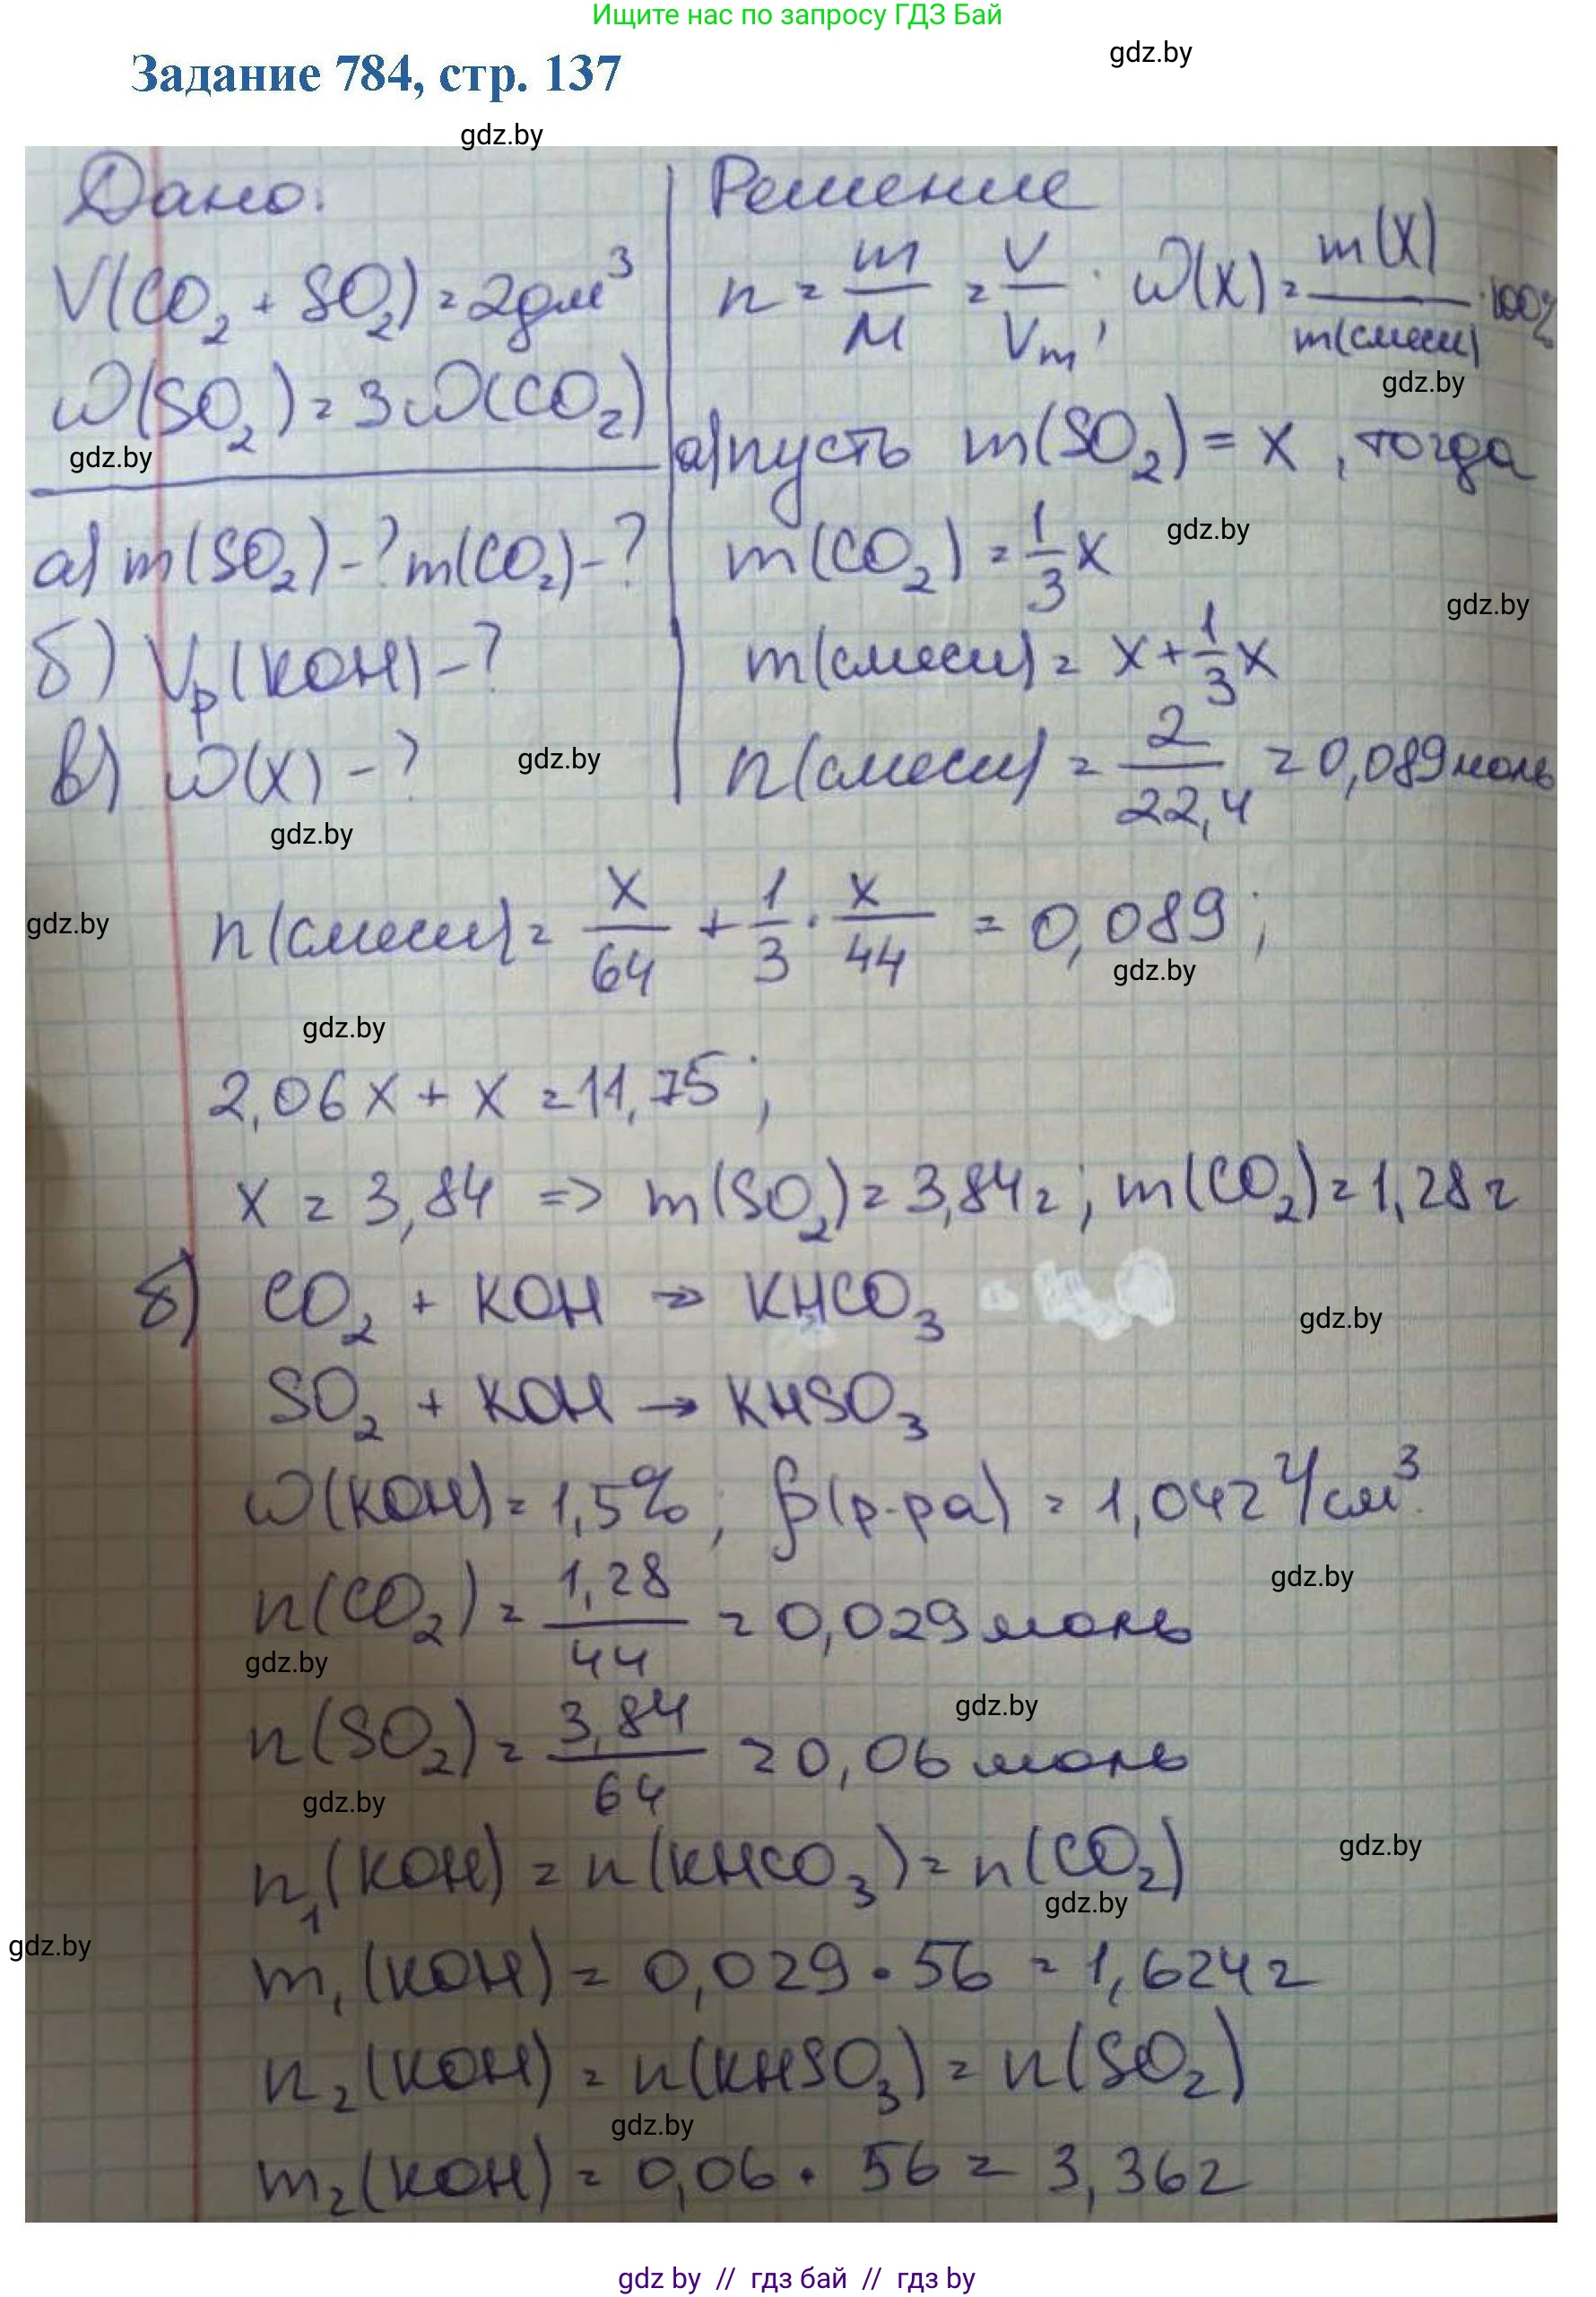 Ищите нас по запросу ГДЗ Бай
gdz.by
Задание 784, стр. 137
gdz.by
Дано:
V(CO₂ + SO₂) = 2дм³
ω(SO₂) = 3ω(CO₂)
gdz.by
а) m(SO₂) - ? m(CO₂) - ?
б) Vр(KOH) - ?
в) ω(X) - ?
gdz.by
gdz.by
Решение
n = m/M = V/Vm; ω(X) = m(X)/m(смеси) · 100%
gdz.by
а) пусть m(SO₂) = x, тогда
m(CO₂) = 1/3 x
gdz.by
gdz.by
m(смеси) = x + 1/3 x
n(смеси) = 2/22,4 = 0,089 моль
gdz.by
n(смеси) = x/64 + 1/3 · x/44 = 0,089;
gdz.by
gdz.by
2,06x + x = 11,75;
x = 3,84 => m(SO₂) = 3,84г; m(CO₂) = 1,28г
б) CO₂ + KOH → KHCO₃
gdz.by
SO₂ + KOH → KHSO₃
ω(KOH) = 1,5%; ρ(р-ра) = 1,042 г/см³.
gdz.by
n(CO₂) = 1,28/44 = 0,029 моль
gdz.by
gdz.by
n(SO₂) = 3,84/64 = 0,06 моль
gdz.by
gdz.by
n₁(KOH) = n(KHCO₃) = n(CO₂)
gdz.by
gdz.by
m₁(KOH) = 0,029 · 56 = 1,624г
n₂(KOH) = n(KHSO₃) = n(SO₂)
gdz.by
m₂(KOH) = 0,06 · 56 = 3,36г
gdz by // гдз бай // гдз by